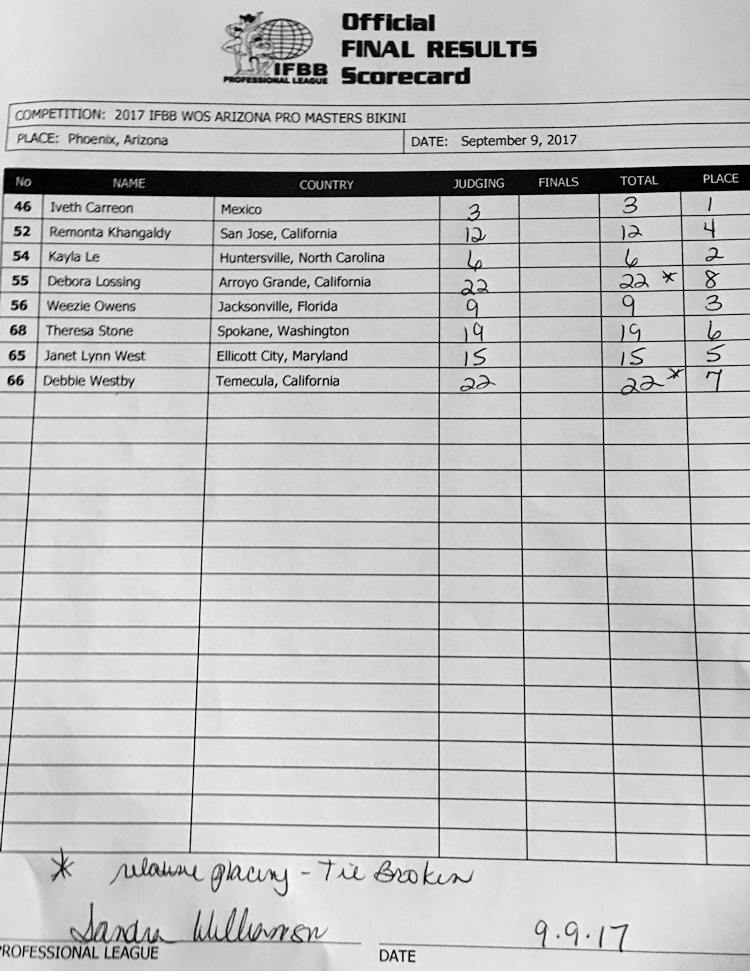 Official
FINAL RESULTS
IFBB
PROFESSIONAL LEAGUE
Scorecard
COMPETITION: 2017 IFBB WOS ARIZONA PRO MASTERS BIKINI
PLACE: Phoenix, Arizona DATE: September 9, 2017
No NAME COUNTRY JUDGING FINALS TOTAL PLACE
46 Iveth Carreon Mexico 3 3 1
52 Remonta Khangaldy San Jose, California 12 12 4
54 Kayla Le Huntersville, North Carolina 6 6 2
55 Debora Lossing Arroyo Grande, California 22 22 * 8
56 Weezie Owens Jacksonville, Florida 9 9 3
68 Theresa Stone Spokane, Washington 19 19 6
65 Janet Lynn West Ellicott City, Maryland 15 15 5
66 Debbie Westby Temecula, California 22 22 * 7
* relative placing - Tie Broken
Sandra Williamson 9.9.17
PROFESSIONAL LEAGUE DATE